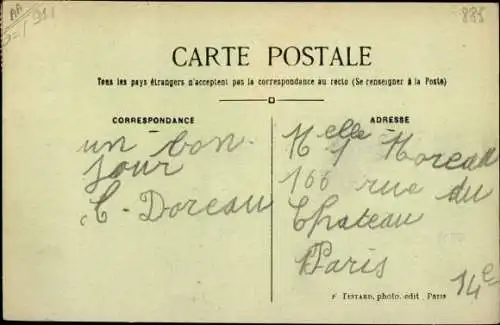 AA
885
CARTE POSTALE
Tous les pays étrangers n'acceptent pas la correspondance au recto (Se renseigner à la Poste)
CORRESPONDANCE
un bon
jour
C. Doreau
ADRESSE
Melle J Moreau
166 rue du
Chateau
Paris
14e
F TESTARD, photo. edit. PARIS